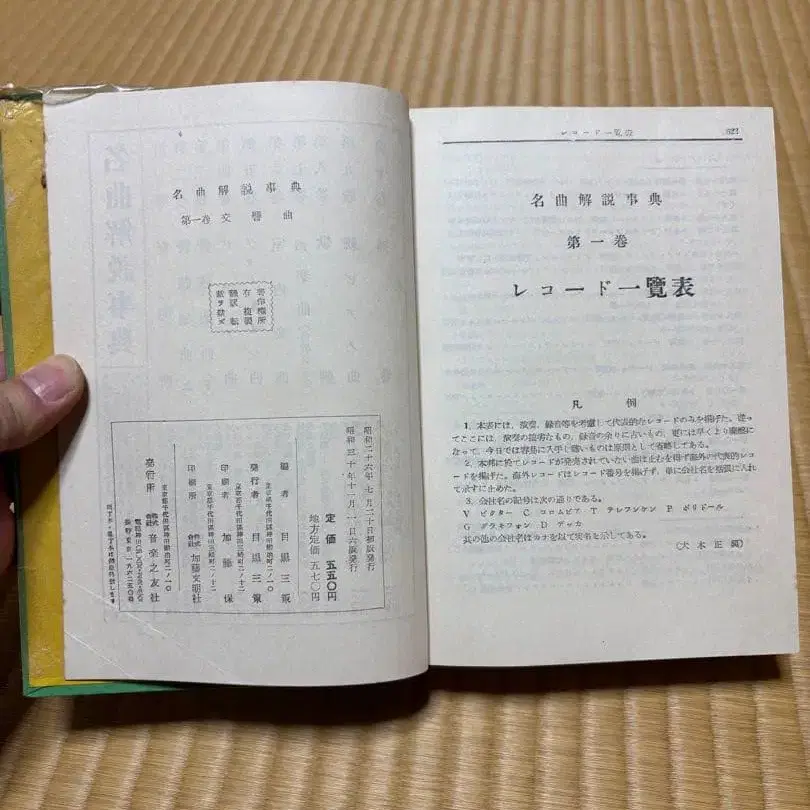 名曲解説事典
第一巻 交響曲
著作権所
有 複製
飜訳 転
載ヲ禁ズ
昭和二十六年七月二十日初版発行
昭和三十年十一月一日六版発行
定価 五五〇円
地方定価 五七〇円
編者 目黒三策
東京都千代田区神田錦治町二ノ一〇
発行者 目黒三策
東京都千代田区神田三崎町二ノ十二
印刷者 加藤保
東京都千代田区神田三崎町二ノ十二
印刷所 株式会社 加藤文明社
発行所 株式会社 音楽之友社
レコード一覧表
623
名曲解説事典
第一巻
レコード一覽表
凡例
1. 本表には、演奏、録音等を考慮して代表的なレコードのみを掲げた。従っ
てここには、演奏の拙劣なもの、録音の余りに古いもの、更には早くより廃盤に
なって、今日では容易に入手し難いものは原則として省略してある。
2. 本邦に於てレコードが発売されていない曲は止むを得ず海外の代表的レコー
ドを掲げた。海外レコードはレコード番号を掲げず、単に会社名を括弧に入れ
て示すに止めた。
3. 会社名の記号は次の通りである。
V ビクター C コロムビア T テレフンケン P ポリドール
G グラモフォン D デッカ
其の他の会社名はカナを以て実名を示してある。
(大木正興)